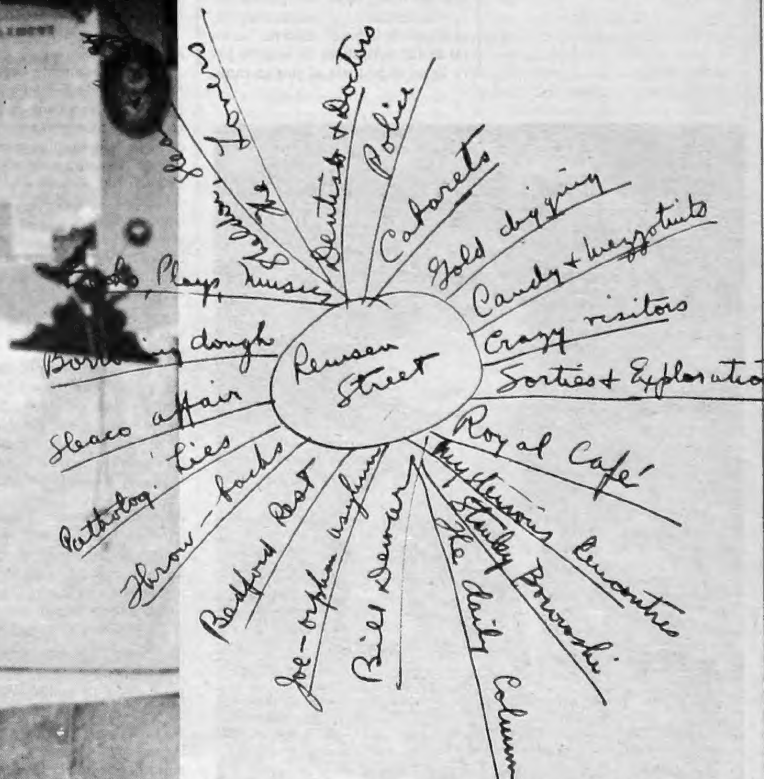 Remsen
Street
The Lovers
Dentists + Doctors
Police
Cabarets
Gold digging
Candy + Mezzotints
Crazy visitors
Sorties + Exploratio
Royal Café
Mysterious Rencontres
Stanley Borowski
The daily Column
Bill Dewar
Joe - orphan asylum
Bedford Rest
Throw-backs
Patholog. Lies
affair
Borrowing dough
Books, Plays, Music